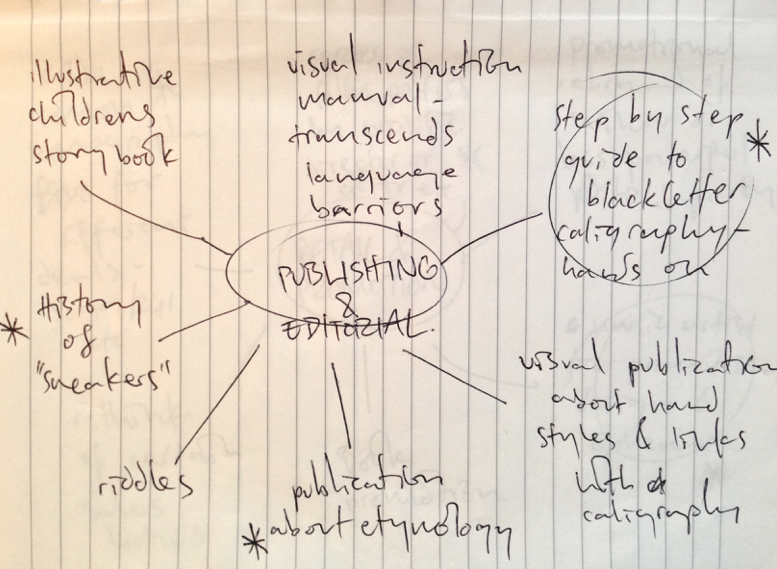 illustrative
childrens
story book
visual instruction
manual -
transcends
language
barriors
step by step
guide to
blackletter
caligraphy -
hands on
*
PUBLISHING
&
EDITORIAL.
* History
of
"sneakers"
riddles
publication
* about etynology
visual publication
about hand
styles & links
with
caligraphy